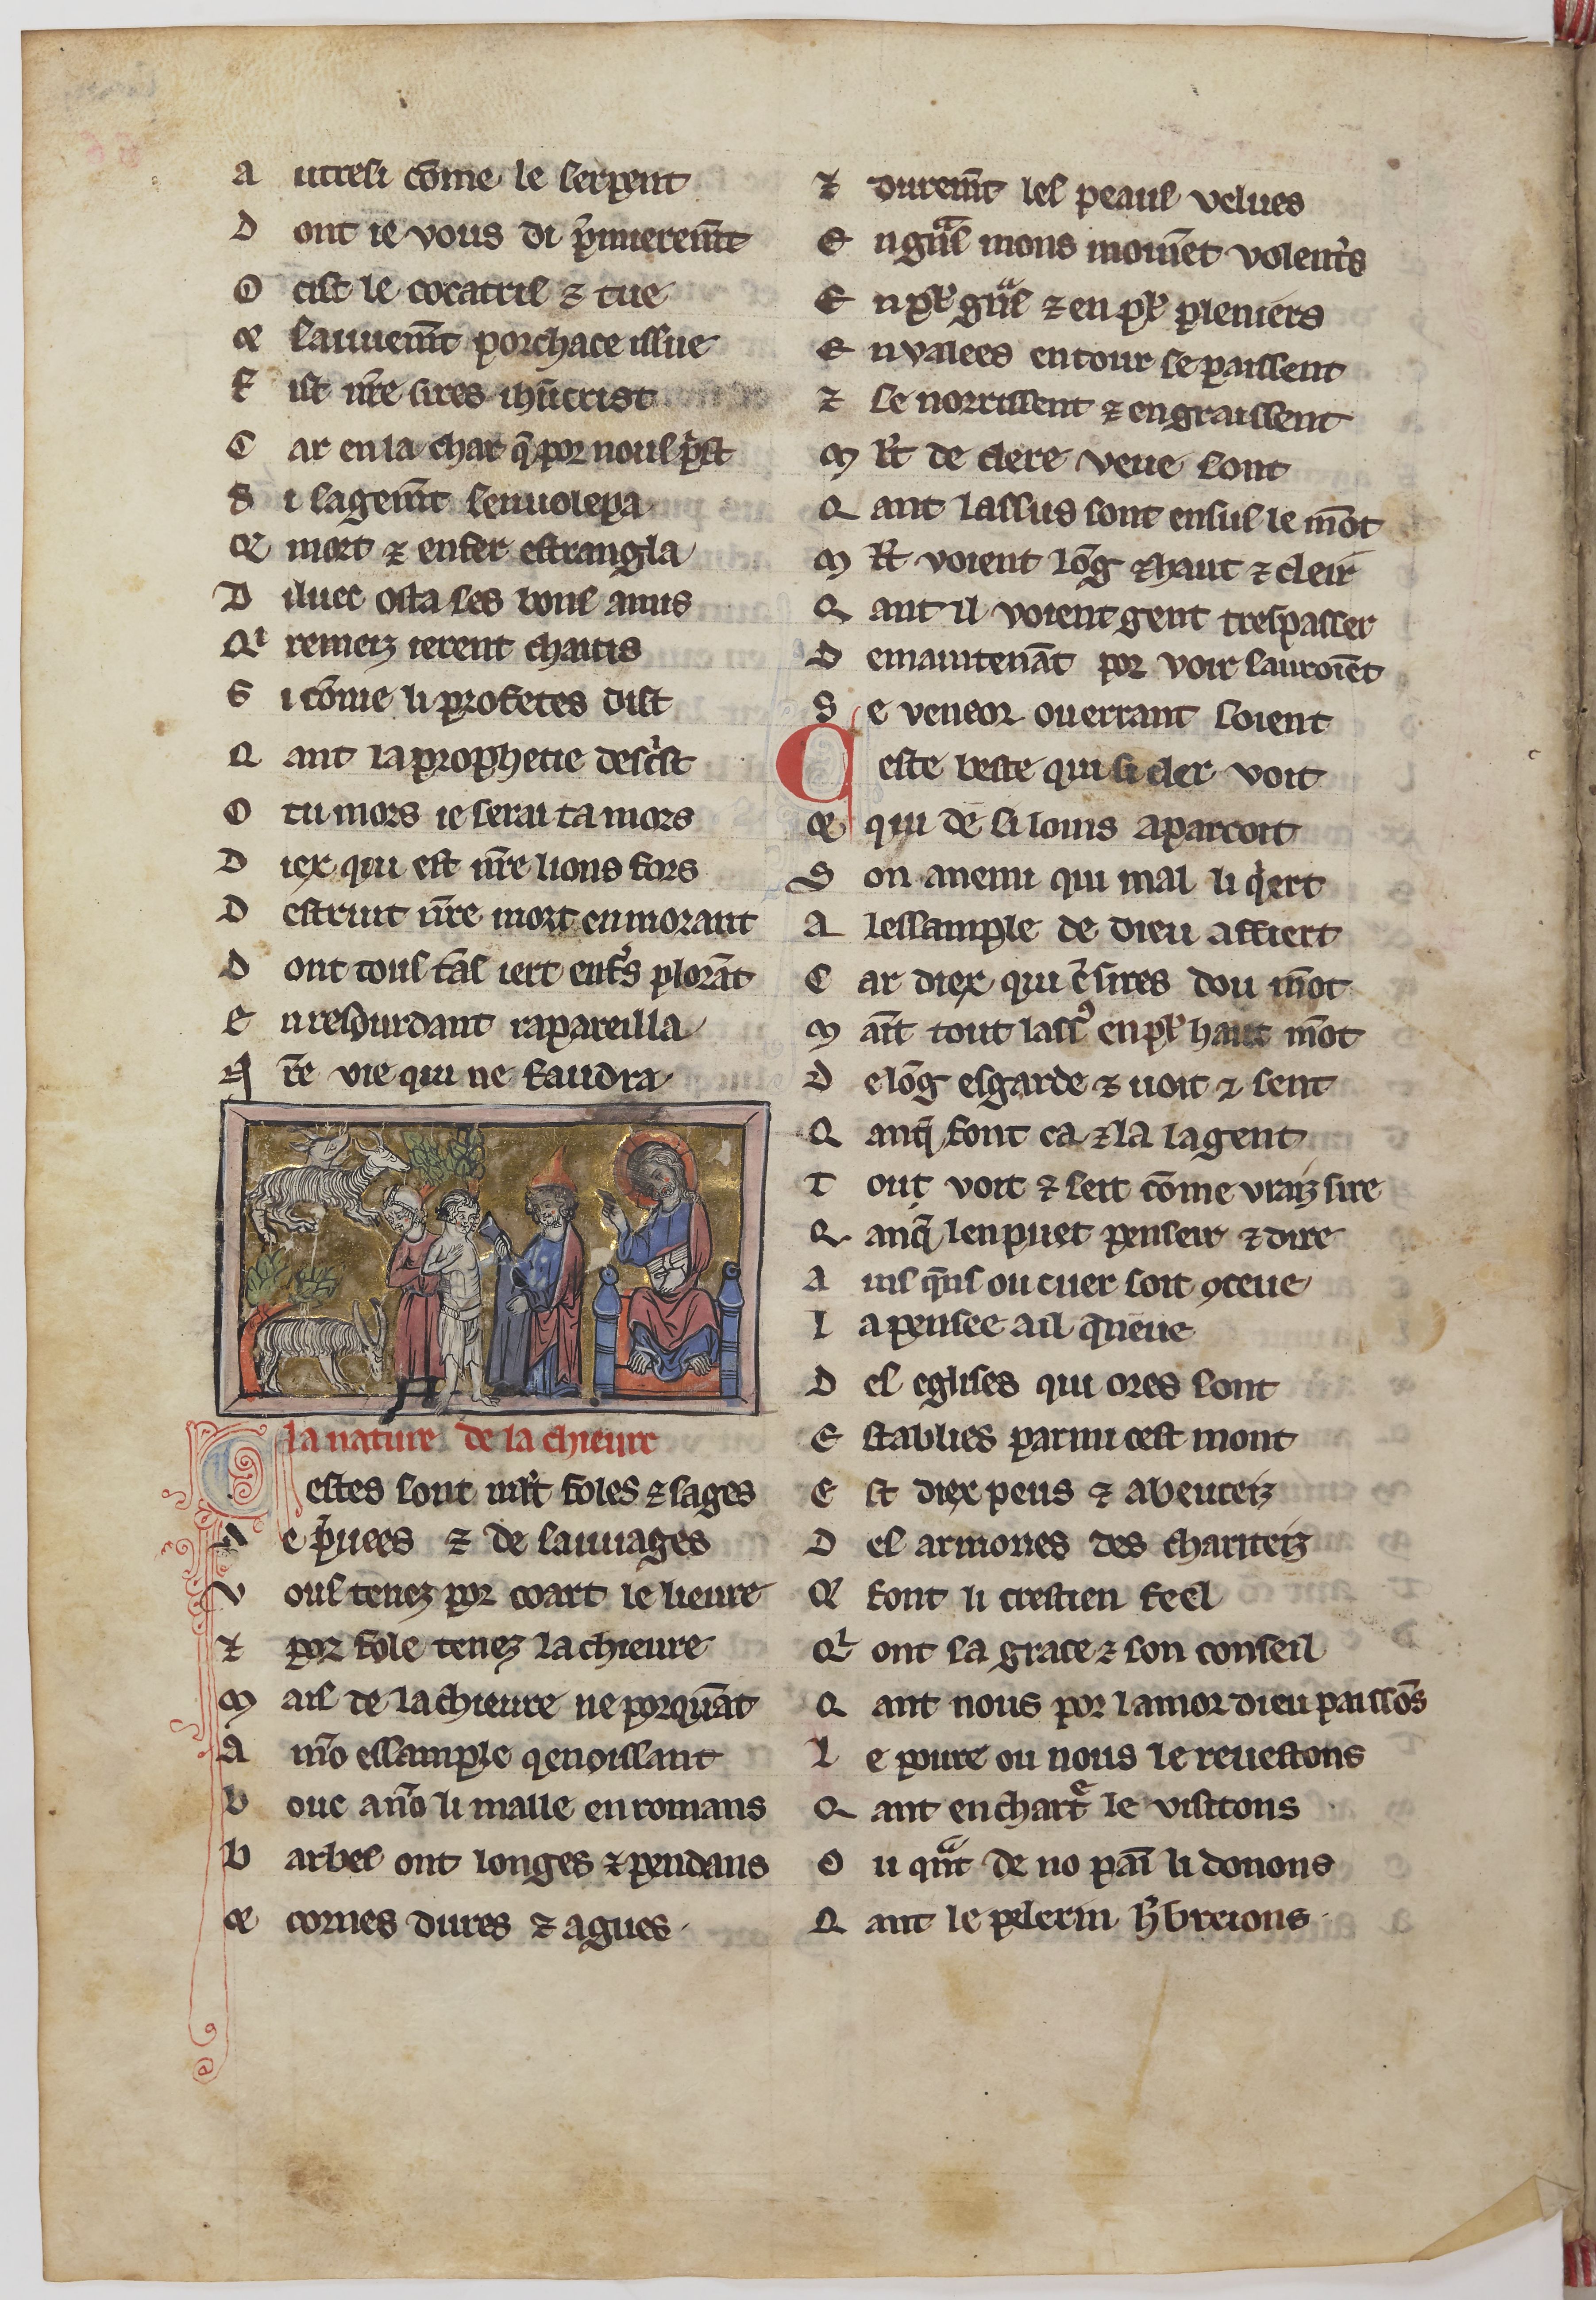 A utresi cōme le serpent
D ont ie vous di p̓mierem̄t
O cist le cocatril ⁊ tue
Et sauuem̄t porchace issue
F ist nr̄e sires ihūcrist
C ar en la char q̄ por nous p̓st
S i sagem̄t senuolepa
Et mort ⁊ enfer estrangla
D iluec osta ses bons amis
Qi remeiz ierent chaitis
S i cōme li profetes dist
Q ant la prophetie desc̓st
O tu mors ie serai ta mors
D iex qui est nr̄e lions fors
D estruit nr̄e mort en morant
D ont tous tās iert enf̓s plorāt
E n resourdant rapareilla
N r̄e vie qui ne faudra
la nature de la chieure
B estes sont ml̄t foles ⁊ sages
D e p̓uees ⁊ de sauuages
V ous tenez por coart le lieure
⁊ por fole tenez la chieure
M ais de la chieure ne porquāt
A uōs essample 9enoissant
B ouc a nō li malle en romans
B arbes ont longes ⁊ pendans
Et cornes dures ⁊ agues
⁊ durem̄t les peaus velues
E n grās mons mainēt volent̓s
E n pl̓ grās ⁊ en pl̓ pleniers
E n valees entour se paissent
⁊ se norrissent ⁊ engraissent
M l̄t de clere veue sont
Q ant lassus sont ensus le mōt
M l̄t voient lōg ⁊ haut ⁊ cleir
Q ant il voient gent trespasser
D emaintenāt por voir sauroiēt
S e veneor ou errant soient
C este beste qui si cler voit
Et qui de si loins aparcoit
S on anemi qui mal li q̓ert
A lessample de dieu affiert
C ar diex qui ē sires dou mōt
M aīt tout lass9 en pl̓ haut mōt
D e lōg esgarde ⁊ uoit ⁊ sent
Q anq̄ font ca ⁊ la la gent
T out voit ⁊ seit cōme vraiz sire
Q anq̄ len puet penseir ⁊ dire
A ins q̄ns ou cuer soit 9ceue
L a pensee a il q̄neue
D es eglises qui ores sont
E stablies parmi cest mont
E st diex peus ⁊ abeureiz
D es armones des chariteiz
Qe font li crestien feel
Qi ont sa grace ⁊ son conseil
Q ant nous por lamor dieu paissōs
L e poure ou nous le reuestons
Q ant en chartᵉ le visitons
O u qnᵃt de no pāi li donons
Q ant le pelerin h̓breions